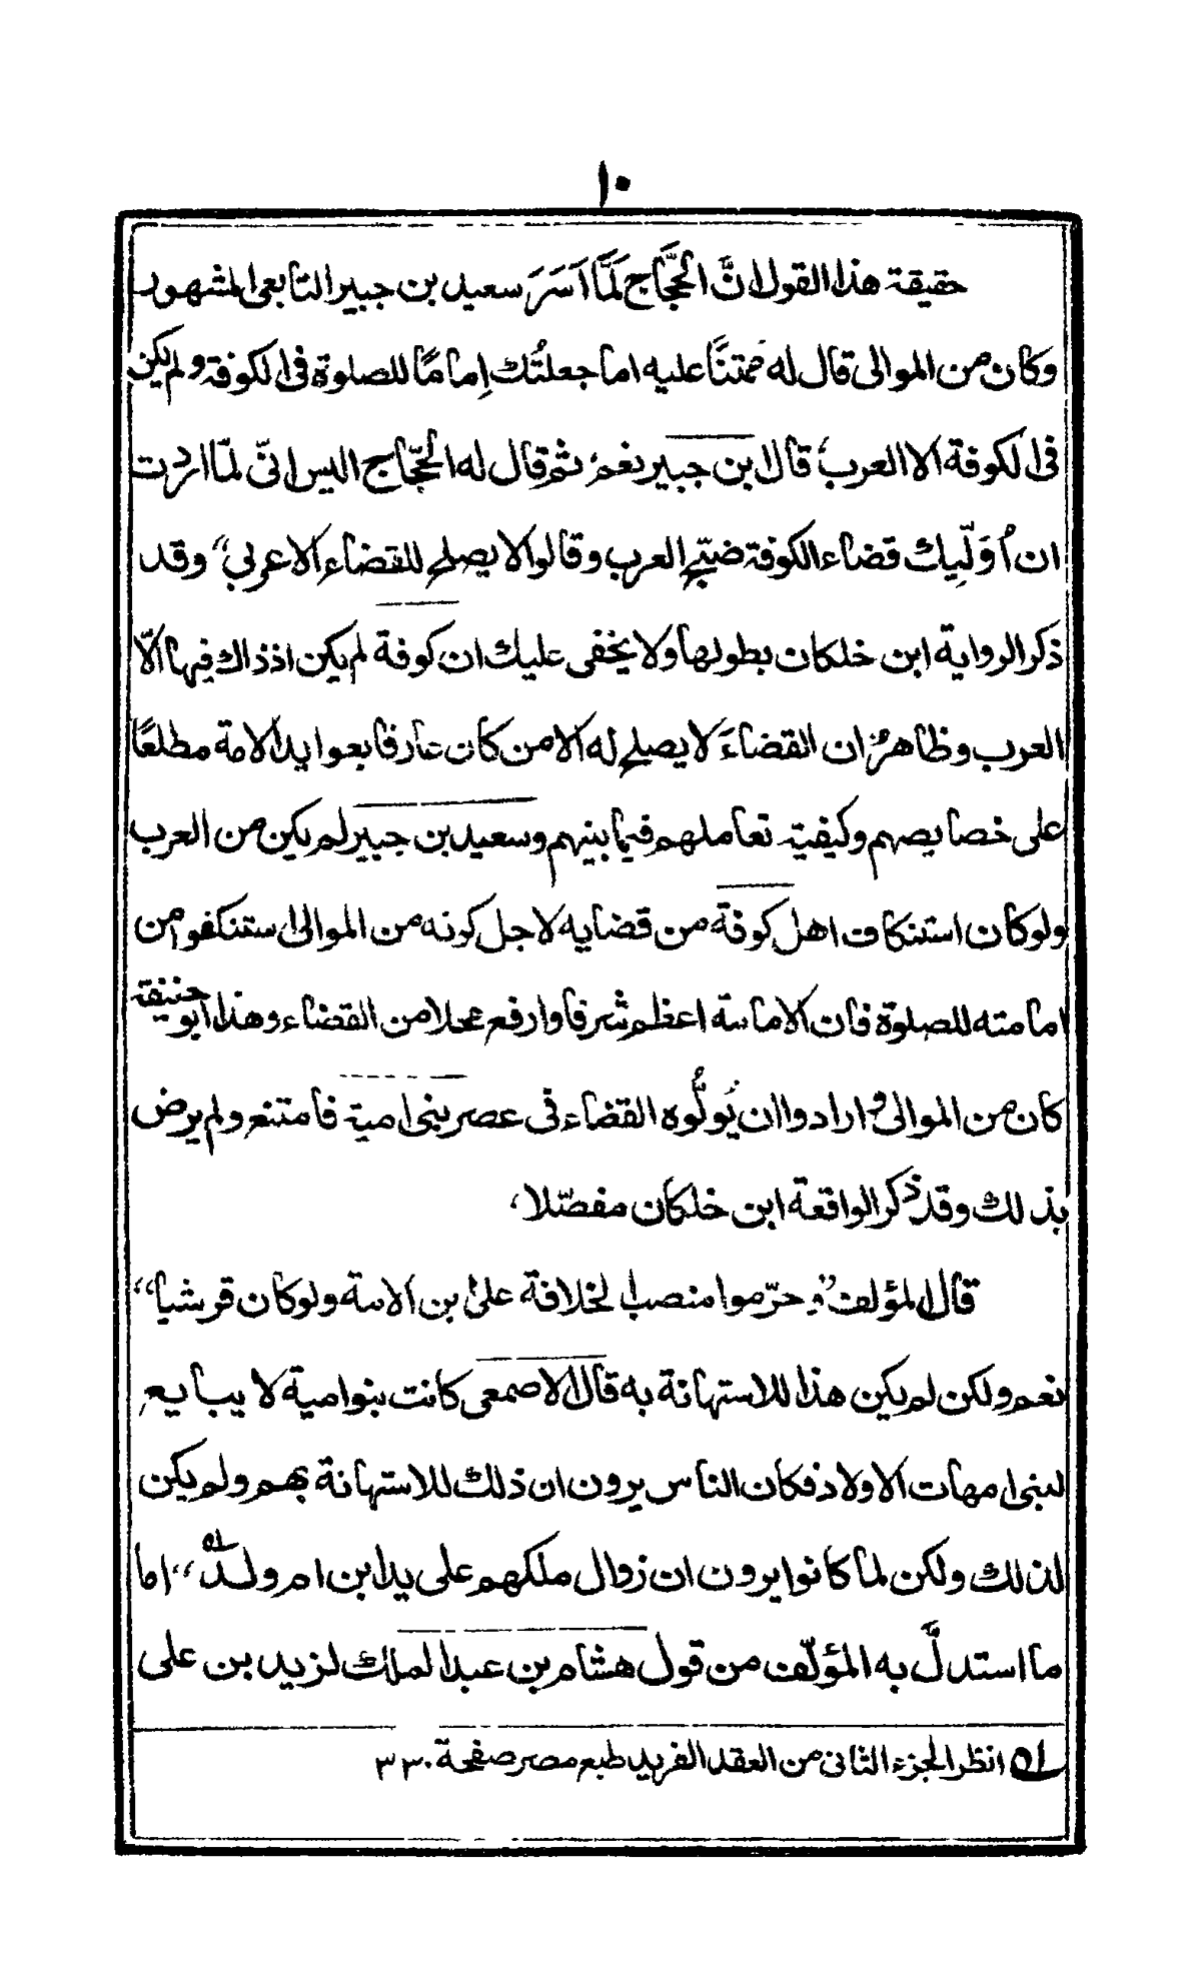 ١٠
حقيقة هذا القول انَّ الحَجَّاج لَمَّا اَسَرَ سعيد بن جبير التابعى المشهور
وكان من الموالى قال له ممتنًّا عليه اما جعلتُك اِمامًا للصلوة فى الكوفة ولم يكن
فى الكوفة الا العرب، قال ابن جبير نعم، ثم قال له الحجّاج اليس انّى لمّا اردت
ان اُوَلِّيك قضاء الكوفة ضجّ العرب وقالوا لا يصلح للقضاء الا عربي“ وقد
ذكر الرواية ابن خلكان بطولها ولا يخفى عليك ان كوفة لم يكن اذ ذاك فيها الّا
العرب وظاهرٌ ان القضاءَ لا يصلح له الا من كان عارفا بعوايد الامة مطلعًا
على خصايصهم وكيفية تعاملهم فيما بينهم وسعيد بن جبير لم يكن من العرب
ولو كان استنكاف اهل كوفة من قضايه لاجل كونه من الموالى استنكفوا من
امامته للصلوة فان الامامة اعظم شرفا وارفع محلا من القضاء وهذا ابو حنيفة
كان من الموالى وارادوا ان يُولُّوه القضاء فى عصر بنى امية فامتنع ولم يرض
بذلك وقد ذكر الواقعة ابن خلكان مفصّلا،
قال المؤلف ”وحرّموا منصب الخلافة على ابن الامة ولو كان قرشيا“
نعم ولكن لم يكن هذا للاستهانة به قال الاصمعى كانت بنو امية لا يبايع
لبنى امهات الاولاد فكان الناس يرون ان ذلك للاستهانة بهم ولم يكن
لذلك ولكن لما كانوا يرون ان زوال ملكهم على يد ابن ام ولد؁“ اما
ما استدلَّ به المؤلّف من قول هشام بن عبد الملك لزيد بن على
؁ انظر الجزء الثانى من العقد الفريد طبع مصر صفحة ٣٣٠